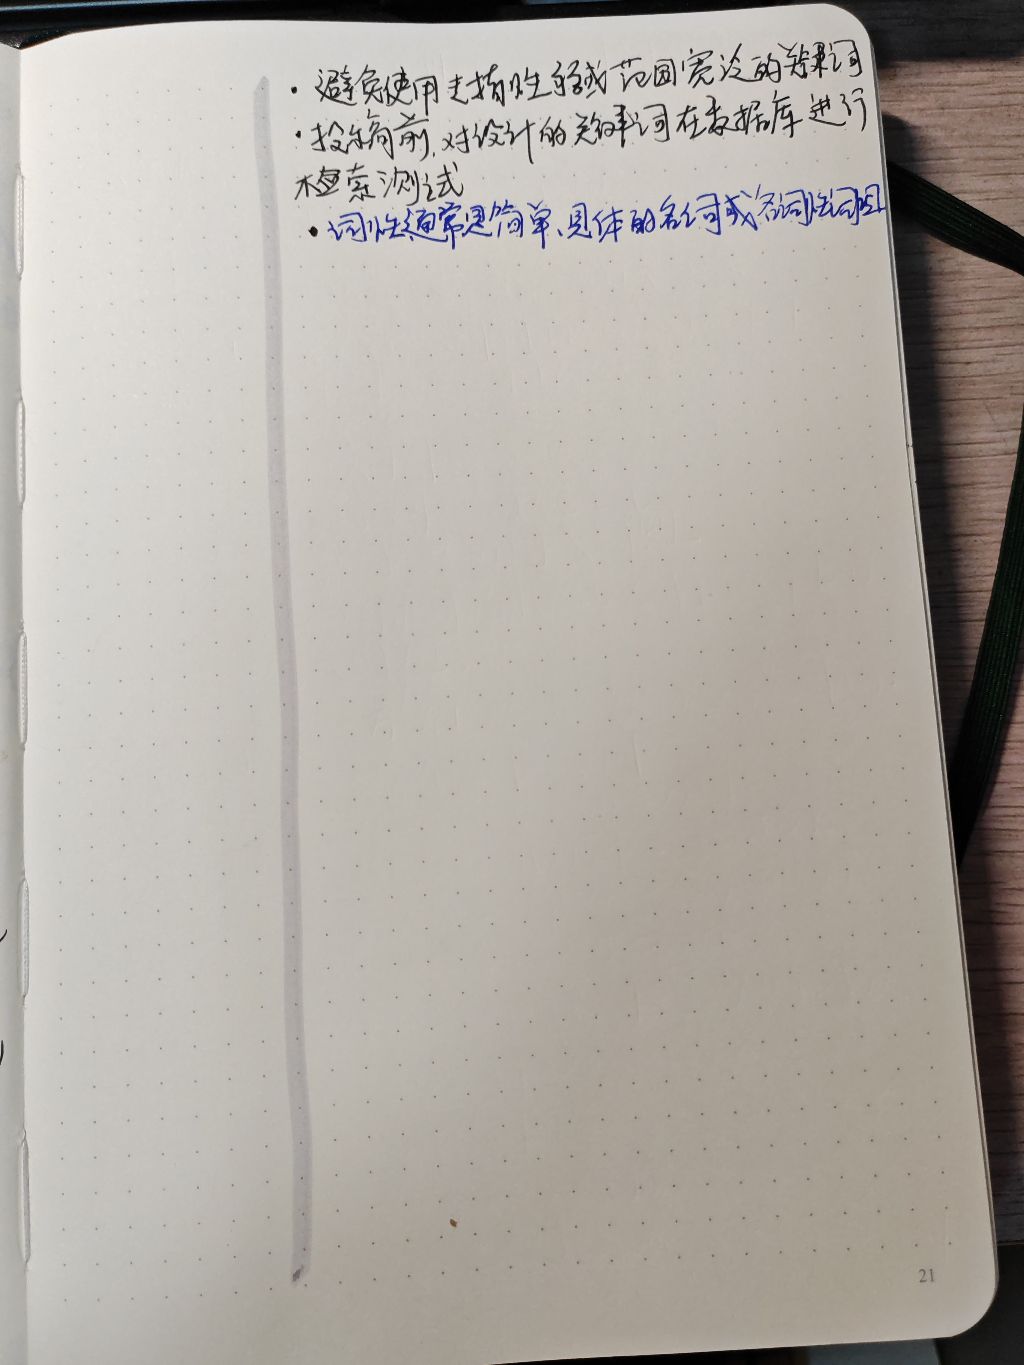 · 避免使用专指性弱或范围宽泛的关键词
· 投稿前,对设计的关键词在数据库进行
检索测试
· 词性通常是简单、具体的名词或名词性词组
21